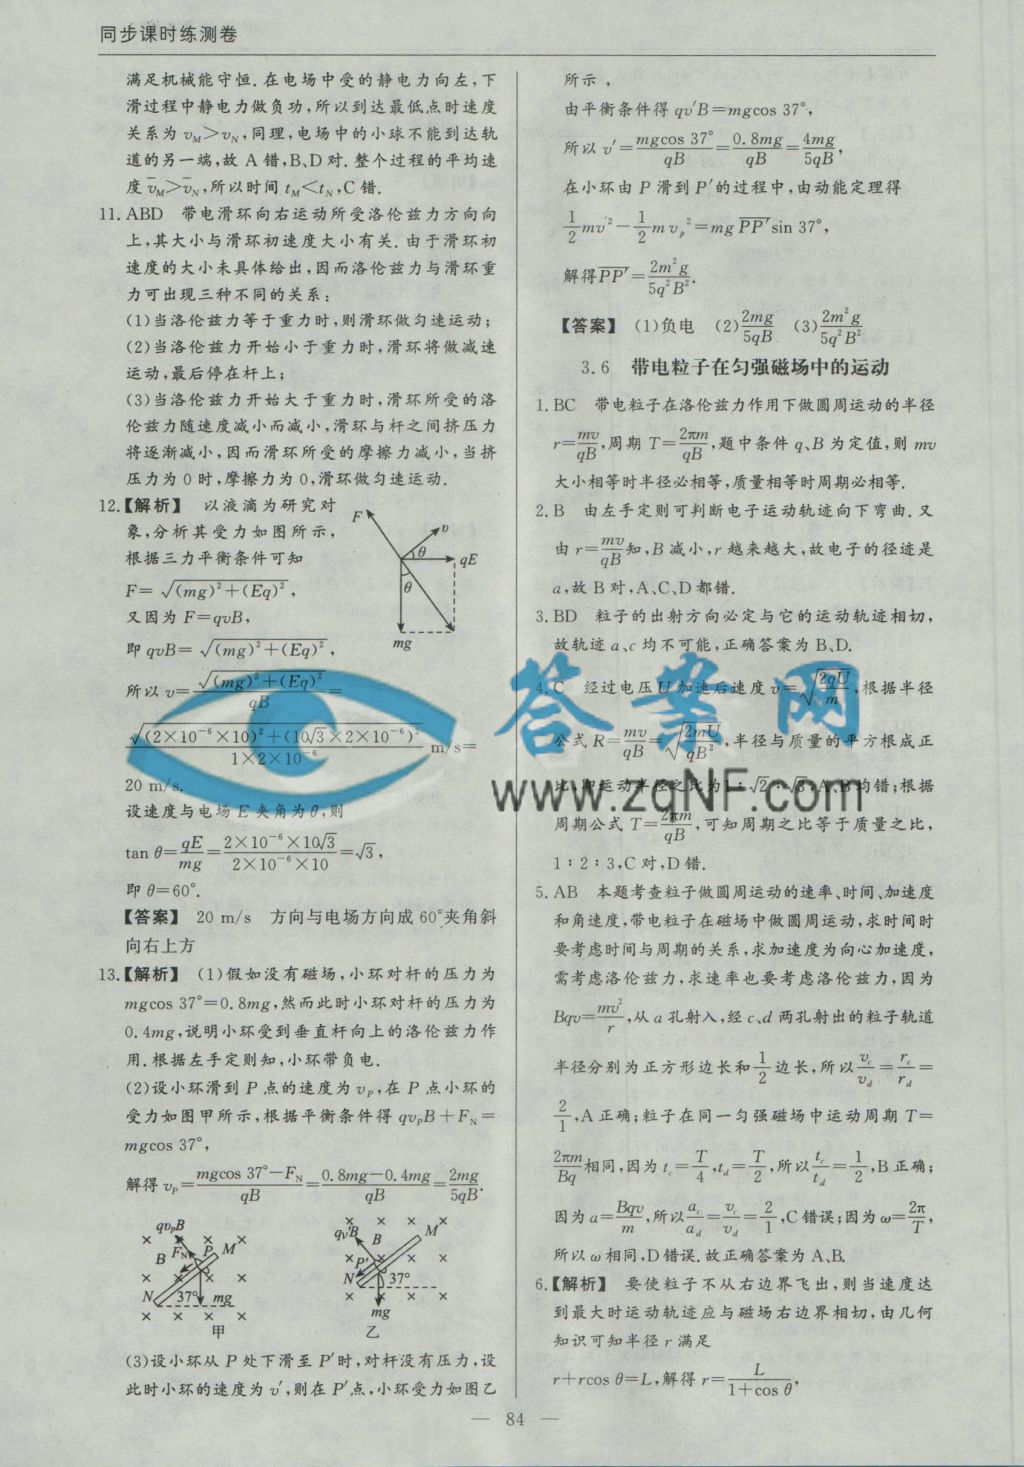 同步课时练测卷
满足机械能守恒.在电场中受的静电力向左,下
滑过程中静电力做负功,所以到达最低点时速度
关系为 v_M>v_N,同理,电场中的小球不能到达轨
道的另一端,故 A 错,B、D 对.整个过程的平均速
度 v̄_M>v̄_N,所以时间 t_M<t_N,C 错.
11. ABD 带电滑环向右运动所受洛伦兹力方向向
上,其大小与滑环初速度大小有关.由于滑环初
速度的大小未具体给出,因而洛伦兹力与滑环重
力可出现三种不同的关系:
(1)当洛伦兹力等于重力时,则滑环做匀速运动;
(2)当洛伦兹力开始小于重力时,滑环将做减速
运动,最后停在杆上;
(3)当洛伦兹力开始大于重力时,滑环所受的洛
伦兹力随速度减小而减小,滑环与杆之间挤压力
将逐渐减小,因而滑环所受的摩擦力减小,当挤
压力为 0 时,摩擦力为 0,滑环做匀速运动.
12.【解析】 以液滴为研究对
象,分析其受力如图所示,
根据三力平衡条件可知
F=√((mg)²+(Eq)²),
又因为 F=qvB,
即 qvB=√((mg)²+(Eq)²),
所以 v=√((mg)²+(Eq)²)/qB=
√((2×10⁻⁶×10)²+(10√3×2×10⁻⁶)²)/(1×2×10⁻⁶) m/s=
20 m/s.
设速度与电场 E 夹角为 θ,则
tan θ=qE/mg=(2×10⁻⁶×10√3)/(2×10⁻⁶×10)=√3,
即 θ=60°.
【答案】 20 m/s 方向与电场方向成 60°夹角斜
向右上方
F
v
θ
qE
θ
mg
13.【解析】 (1)假如没有磁场,小环对杆的压力为
mgcos 37°=0.8mg,然而此时小环对杆的压力为
0.4mg,说明小环受到垂直杆向上的洛伦兹力作
用.根据左手定则知,小环带负电.
(2)设小环滑到 P 点的速度为 v_P,在 P 点小环的
受力如图甲所示,根据平衡条件得 qv_PB+F_N=
mgcos 37°,
解得 v_P=(mgcos 37°-F_N)/qB=(0.8mg-0.4mg)/qB=2mg/5qB.
qv_PB
B F_N P M
N 37° mg
甲
qv′B B M
P′
N 37°
mg
乙
(3)设小环从 P 处下滑至 P′时,对杆没有压力,设
此时小环的速度为 v′,则在 P′点,小环受力如图乙
所示,
由平衡条件得 qv′B=mgcos 37°,
所以 v′=mgcos 37°/qB=0.8mg/qB=4mg/5qB,
在小环由 P 滑到 P′的过程中,由动能定理得
1/2 mv′²-1/2 mv_P²=mg PP′ sin 37°,
解得PP′=2m²g/5q²B².
【答案】 (1)负电 (2)2mg/5qB (3)2m²g/5q²B²
3.6 带电粒子在匀强磁场中的运动
1. BC 带电粒子在洛伦兹力作用下做圆周运动的半径
r=mv/qB,周期 T=2πm/qB,题中条件 q、B 为定值,则 mv
大小相等时半径必相等,质量相等时周期必相等.
2. B 由左手定则可判断电子运动轨迹向下弯曲.又
由 r=mv/qB知,B 减小,r 越来越大,故电子的径迹是
a,故 B 对,A、C、D 都错.
3. BD 粒子的出射方向必定与它的运动轨迹相切,
故轨迹 a、c 均不可能,正确答案为 B、D.
4. C 经过电压 U 加速后速度 v=√(2qU/m),根据半径
公式 R=mv/qB=√(2mU/qB²),半径与质量的平方根成正
比,即运动半径之比为1:√2:√3,A、B均错;根据
周期公式 T=2πm/qB,可知周期之比等于质量之比,
1:2:3,C 对,D 错.
5. AB 本题考查粒子做圆周运动的速率、时间、加速度
和角速度,带电粒子在磁场中做圆周运动,求时间时
要考虑时间与周期的关系,求加速度为向心加速度,
需考虑洛伦兹力,求速率也要考虑洛伦兹力,因为
Bqv=mv²/r,从 a 孔射入,经 c、d 两孔射出的粒子轨道
半径分别为正方形边长和1/2边长,所以v_c/v_d=r_c/r_d=
2/1,A 正确;粒子在同一匀强磁场中运动周期 T=
2πm/Bq相同,因为 t_c=T/4,t_d=T/2,所以t_c/t_d=1/2,B 正确;
因为 a=Bqv/m,所以a_c/a_d=v_c/v_d=2/1,C 错误;因为 ω=2π/T,
所以 ω 相同,D 错误.故正确答案为 A、B.
6.【解析】 要使粒子不从右边界飞出,则当速度达
到最大时运动轨迹应与磁场右边界相切,由几何
知识可知半径 r 满足
r+rcos θ=L,解得 r=L/(1+cos θ),
答案网
www.zqNF.com
— 84 —